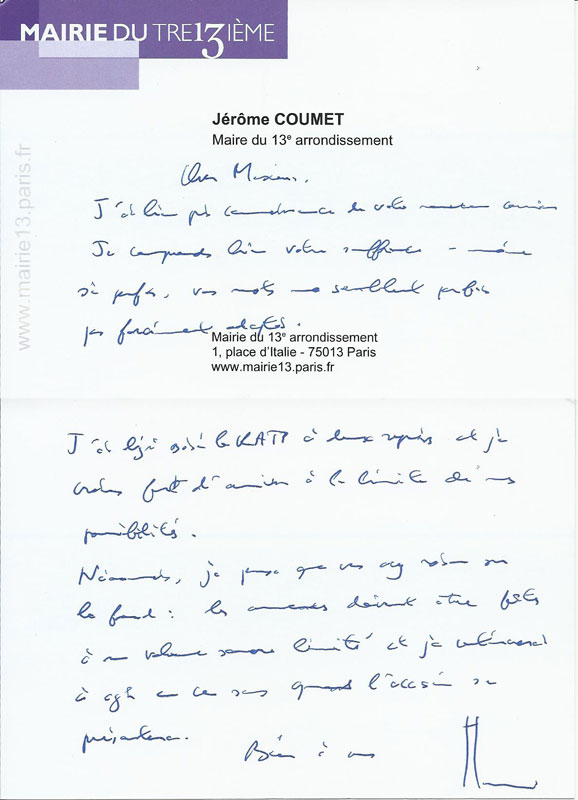 MAIRIE DU TRE13IÈME
www.mairie13.paris.fr
Jérôme COUMET
Maire du 13e arrondissement
Cher Monsieur,
J'ai bien pris connaissance de votre nouveau courrier
Je comprends bien votre souffrance - même
si parfois, vos mots me semblent parfois
pas forcément adaptés.
Mairie du 13e arrondissement
1, place d'Italie - 75013 Paris
www.mairie13.paris.fr
J'ai déjà saisi la RATP à deux reprises et je
fort d' à la limite de nos
possibilités.
Néanmoins, je pense que vous avez raison sur
le fond : les annonces doivent être faites
à un volume sonore limité et je
à agir en ce sens quand l'occasion se
présentera.
Bien à vous